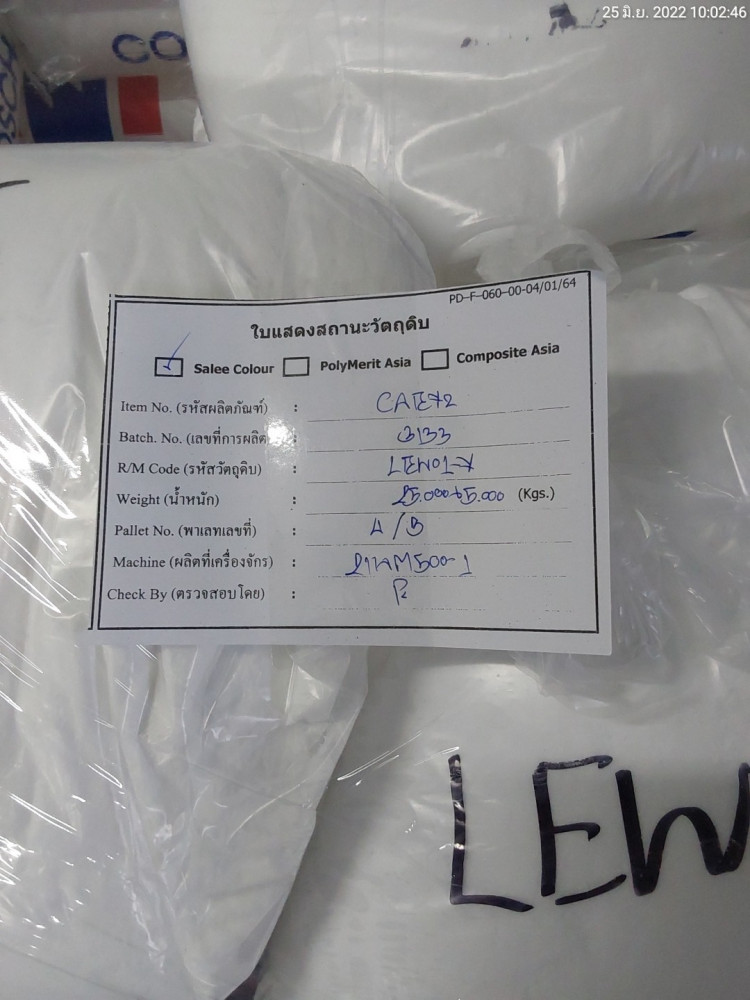 25 มิ.ย. 2022 10:02:46
CO
PD-F-060-00-04/01/64
ใบแสดงสถานะวัตถุดิบ
Salee Colour PolyMerit Asia Composite Asia
Item No. (รหัสผลิตภัณฑ์) :
Batch. No. (เลขที่การผลิต) : 3133
R/M Code (รหัสวัตถุดิบ) :
Weight (น้ำหนัก) : 25.000+5.000 (Kgs.)
Pallet No. (พาเลทเลขที่) : 4/3
Machine (ผลิตที่เครื่องจักร) :
Check By (ตรวจสอบโดย) :
LEW